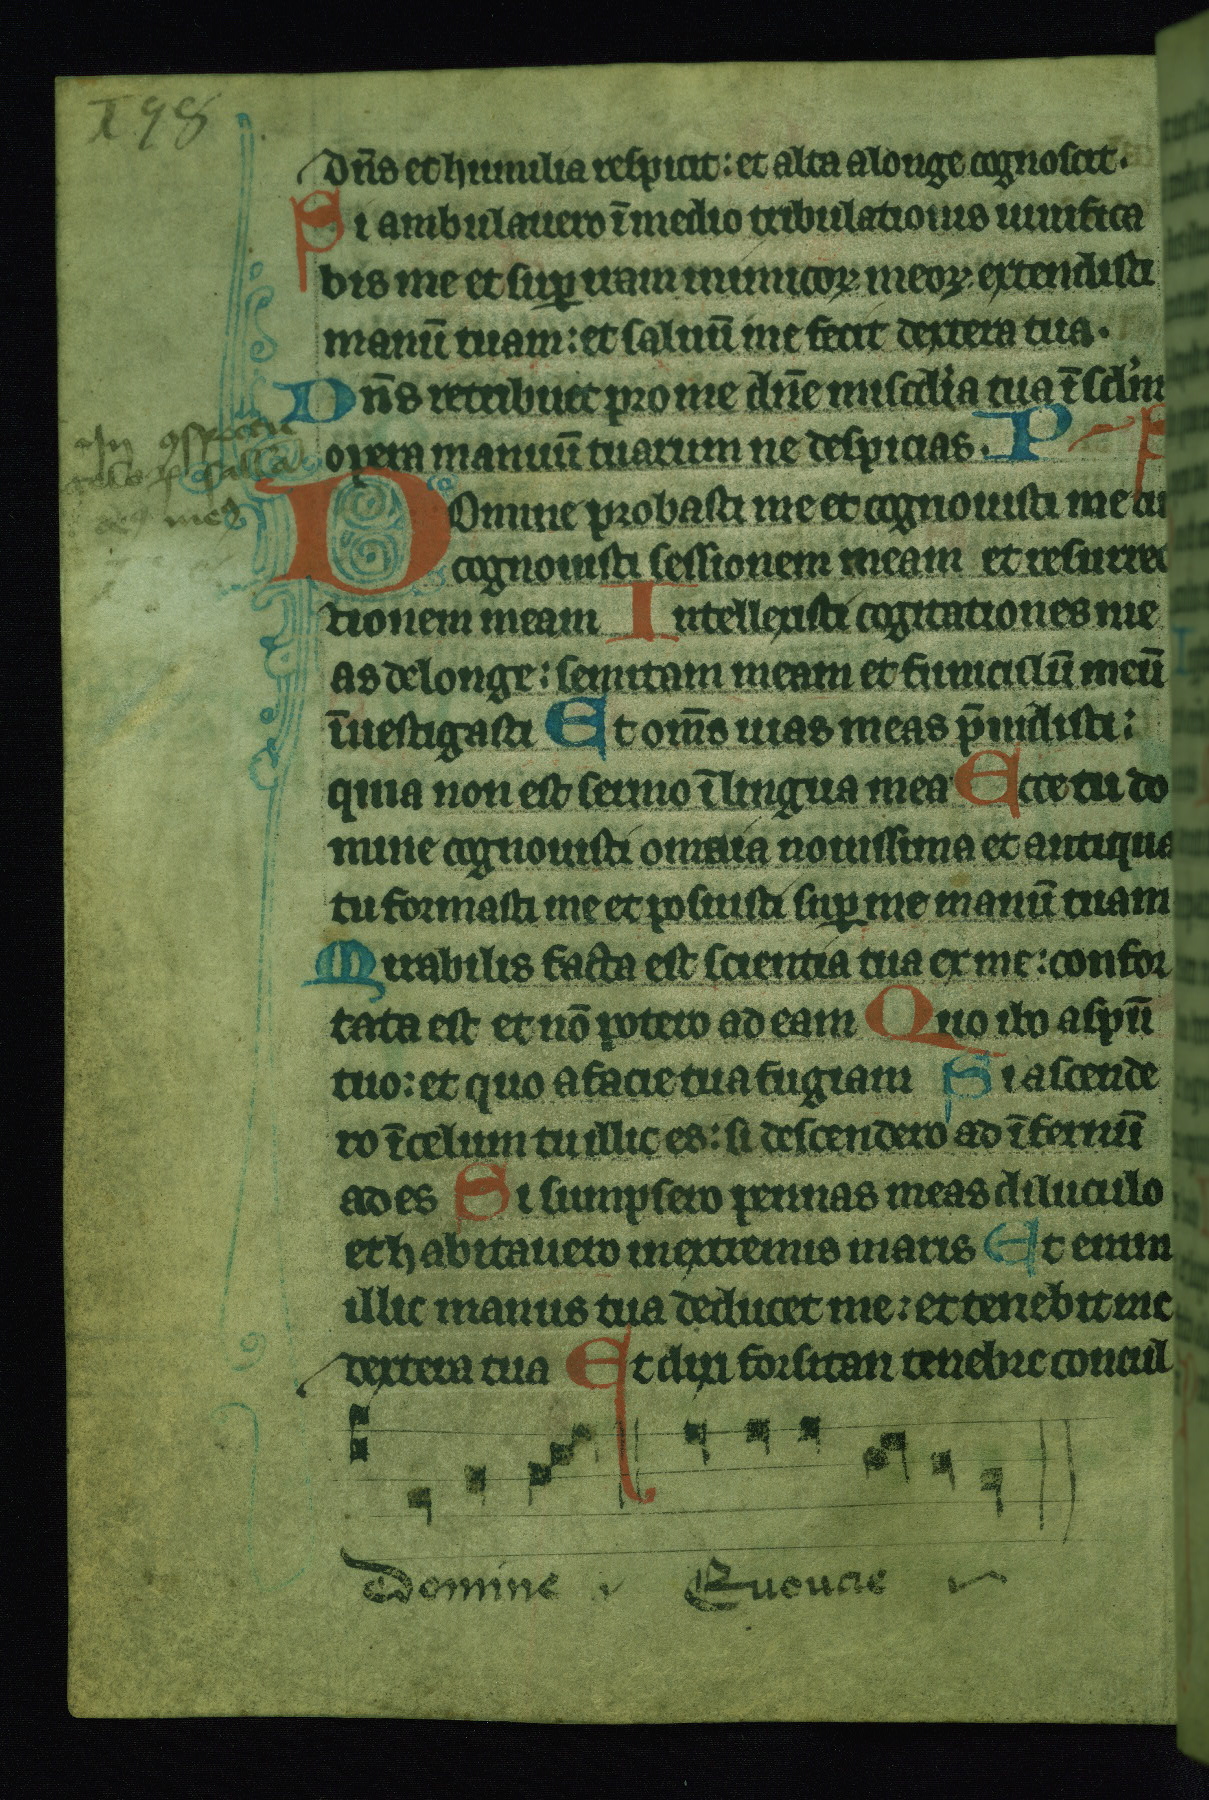 198
dn̄s et humilia respicit: et alta alonge cognoscit.
Si ambulauero ī medio tribulationis uiuifica
bis me et sup̱ iram inimicoꝝ meoꝝ extendisti
manū tuam: et saluū me fecit dextera tua.
Dn̄s retribuet pro me dn̄e mis̄c̄dia tua ī sc̄lm
opera manuū tuarum ne despicias. P
Domine probasti me et cognouisti me tu
cognouisti sessionem meam et resurrec
tionem meam Intellexisti cogitationes me
as de longe: semitam meam et funiculū meū
īuestigasti Et om̄s uias meas p̄uidisti:
quia non est sermo ī lingua mea Ecce tu do
mine cognouisti omnia nouissima et antiqua
tu formasti me et posuisti sup̱ me manū tuam
Mirabilis facta est scientia tua ex me: confor
tata est et nō potero ad eam Quo ibo a spū
tuo: et quo a facie tua fugiam Si ascende
ro ī celum tu illic es: si descendero ad īfernū
ad es Si sumpsero pennas meas diluculo
et habitauero in extremis maris Et enim
illic manus tua deducet me: et tenebit me
dextera tua Et dixi forsitan tenebre concul
Domine Euouae